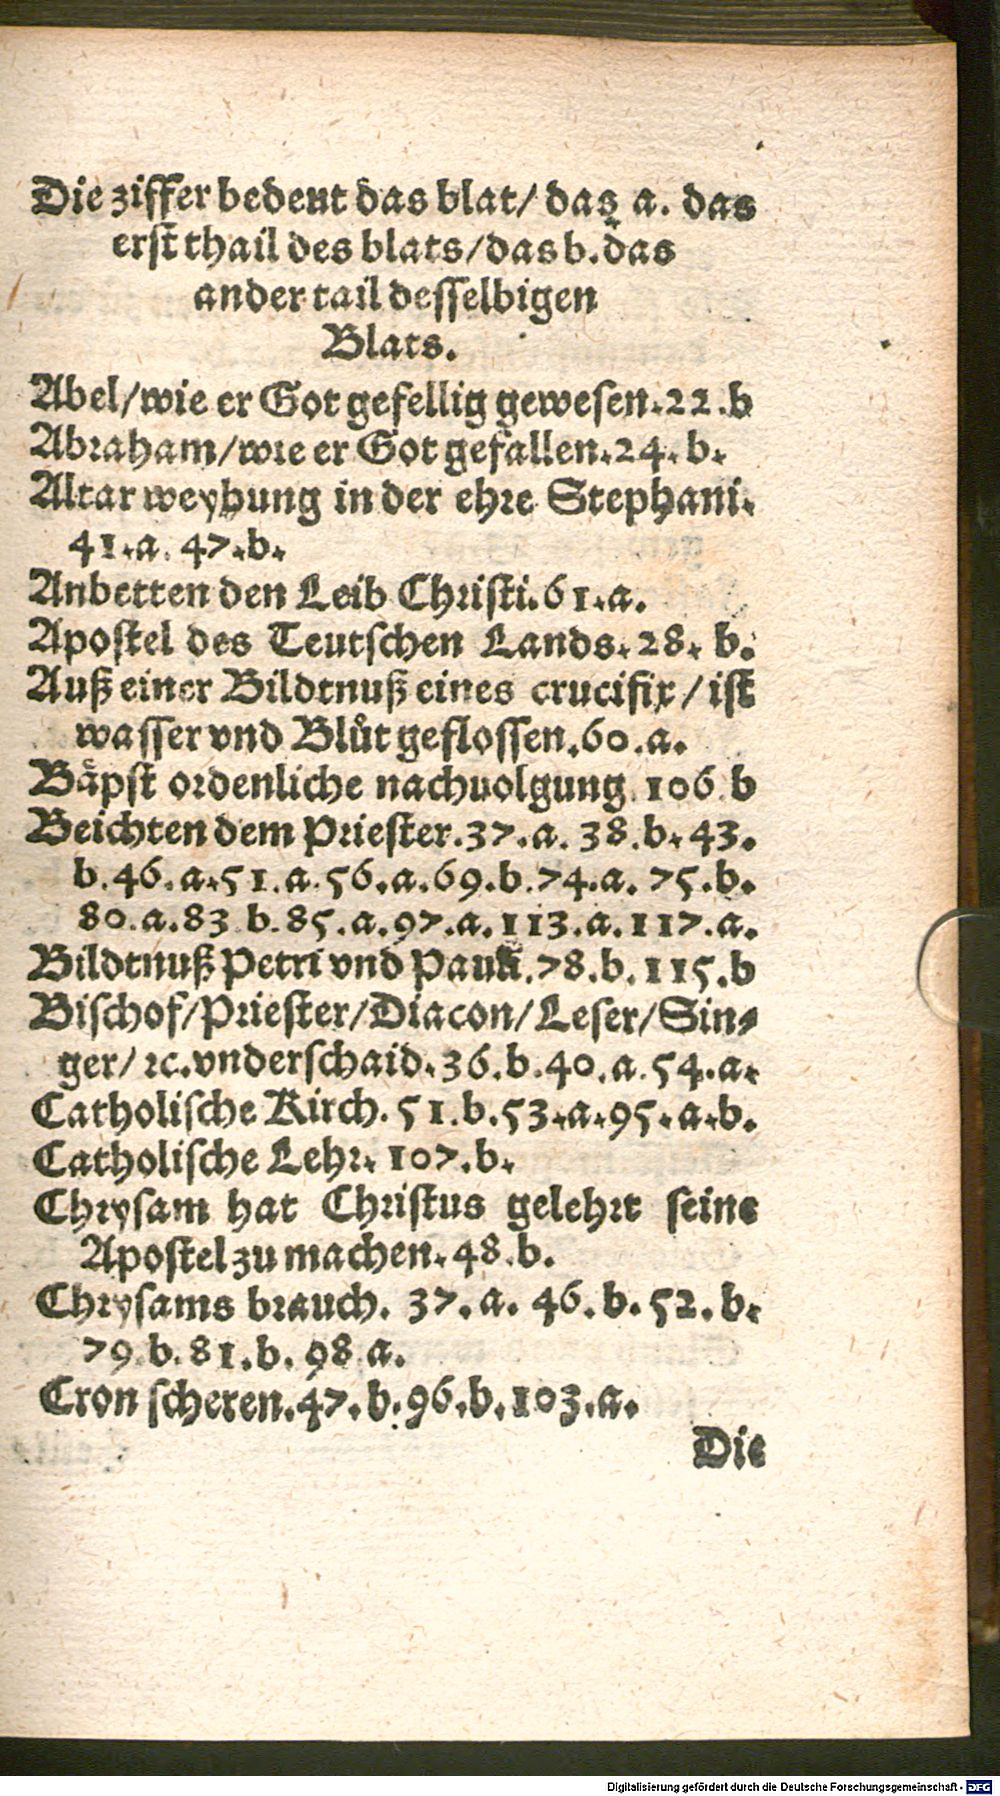 Die ziffer bedeut das blat/ das a. das
erst thail des blats/das b. das
ander tail desselbigen
Blats.
Abel/wie er Got gefellig gewesen. 22. b
Abraham/wie er Got gefallen. 24. b.
Altar weyhung in der ehre Stephani.
41. a. 47. b.
Anbetten den Leib Christi. 61. a.
Apostel des Teutschen Lands. 28. b.
Auß einer Bildtnuß eines crucifix/ ist
wasser vnd Blůt geflossen. 60. a.
Bäpst ordenliche nachuolgung. 106. b
Beichten dem Priester. 37. a. 38. b. 43.
b. 46. a. 51. a. 56. a. 69. b. 74. a. 75. b.
80. a. 83 b. 85. a. 97. a. 113. a. 117. a.
Bildtnuß Petri vnd Pauli. 78. b. 115. b
Bischof/Priester/Diacon/Leser/Sin⸗
ger/ ꝛc. vnderschaid. 36. b. 40. a. 54. a.
Catholische Kirch. 51. b. 53. a. 95. a. b.
Catholische Lehr. 107. b.
Chrysam hat Christus gelehrt seine
Apostel zu machen. 48. b.
Chrysams brauch. 37. a. 46. b. 52. b.
79. b. 81. b. 98 a.
Cron scheren. 47. b. 96. b. 103. a.
Die
Digitalisierung gefördert durch die Deutsche Forschungsgemeinschaft - DFG